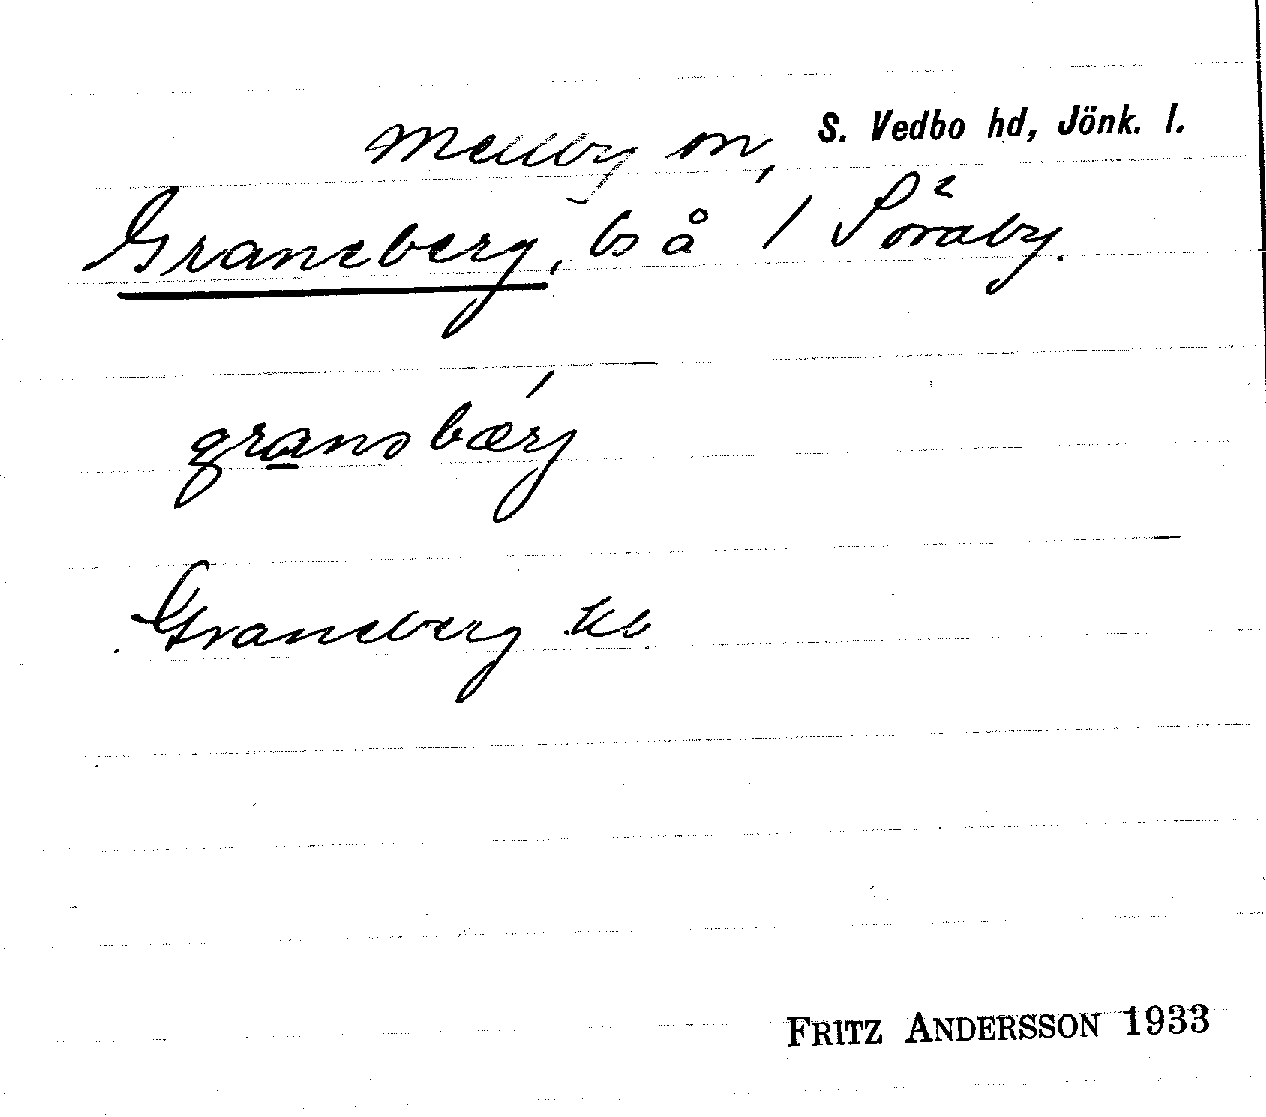 Mellby sn, S. Vedbo hd, Jönk. l.
Graneberg, ls å / Söraby.
granəbærj
Graneberg kb.
FRITZ ANDERSSON 1933